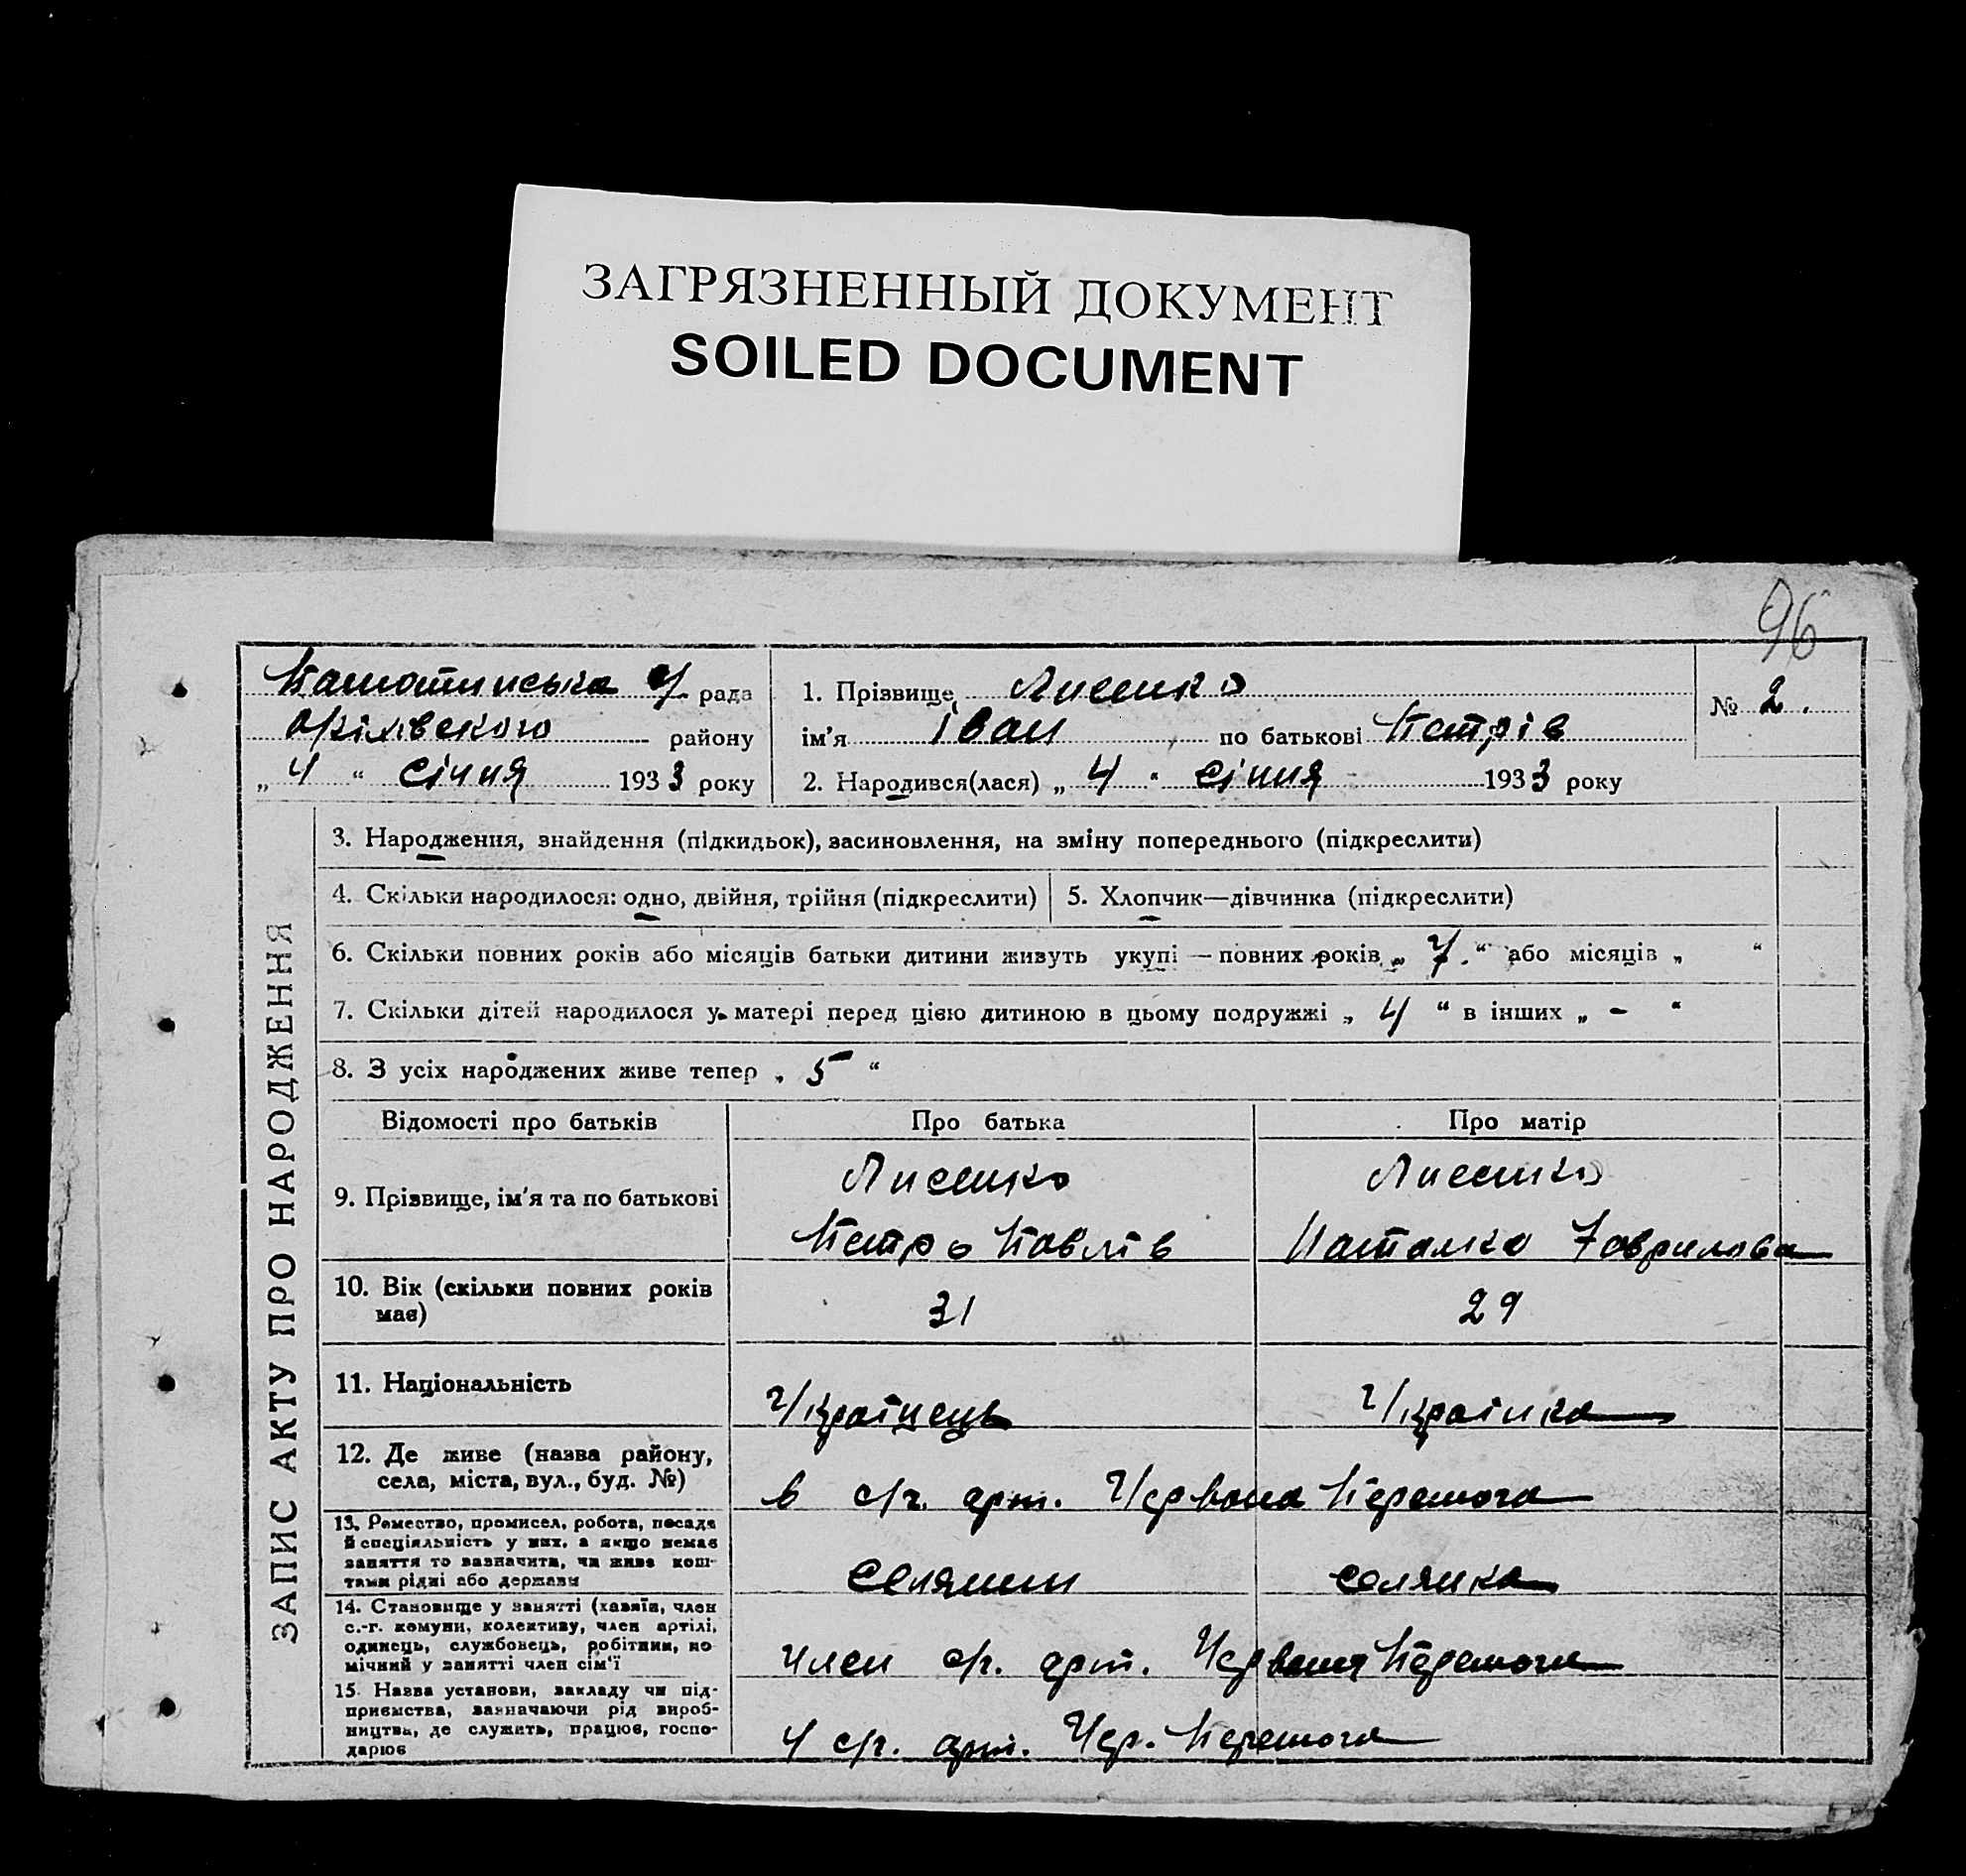 ЗАГРЯЗНЕННЫЙ ДОКУМЕНТ
SOILED DOCUMENT
96
с/ рада
району
„ 4 “ січня 1933 року
1. Прізвище Лисенко
ім'я Іван по батькові Петрів
2. Народився(лася) „ 4 “ січня 1933 року
№ 2.
ЗАПИС АКТУ ПРО НАРОДЖЕННЯ
3. Народження, знайдення (підкидьок), засиновлення, на зміну попереднього (підкреслити)
4. Скільки народилося: одно, двійня, трійня (підкреслити)
5. Хлопчик—дівчинка (підкреслити)
6. Скільки повних років або місяців батьки дитини живуть укупі — повних років „ 7. “ або місяців „ “
7. Скільки дітей народилося у матері перед цією дитиною в цьому подружжі „ 4 “ в інших „ - “
8. З усіх народжених живе тепер „ 5 “
Відомості про батьків
Про батька
Про матір
9. Прізвище, ім'я та по батькові
Лисенко
Петро Павлів
Лисенко
Наталка Гаврилова
10. Вік (скільки повних років
має)
31
29
11. Національність
Українець
Українка
12. Де живе (назва району,
села, міста, вул., буд. №)
в с/г. арт. Червона Перемога
13. Ремество, промисел, робота, посада
й спеціяльність у них, а якщо немає
заняття то вазначити, чи живе кош-
тами рідні або держави
селянин
селянка
14. Становище у занятті (хазяїн, член
с.-г. комуни, колективу, член артілі,
одинець, службовець, робітник, по-
мічний у занятті член сім'ї
член с/г. арт. Червона Перемога
15. Назва установи, закладу чи під-
приємства, зазначаючи рід вироб-
ництва, де служить, працює, госпо-
дарює
У с/г. арт. Чер. Перемога